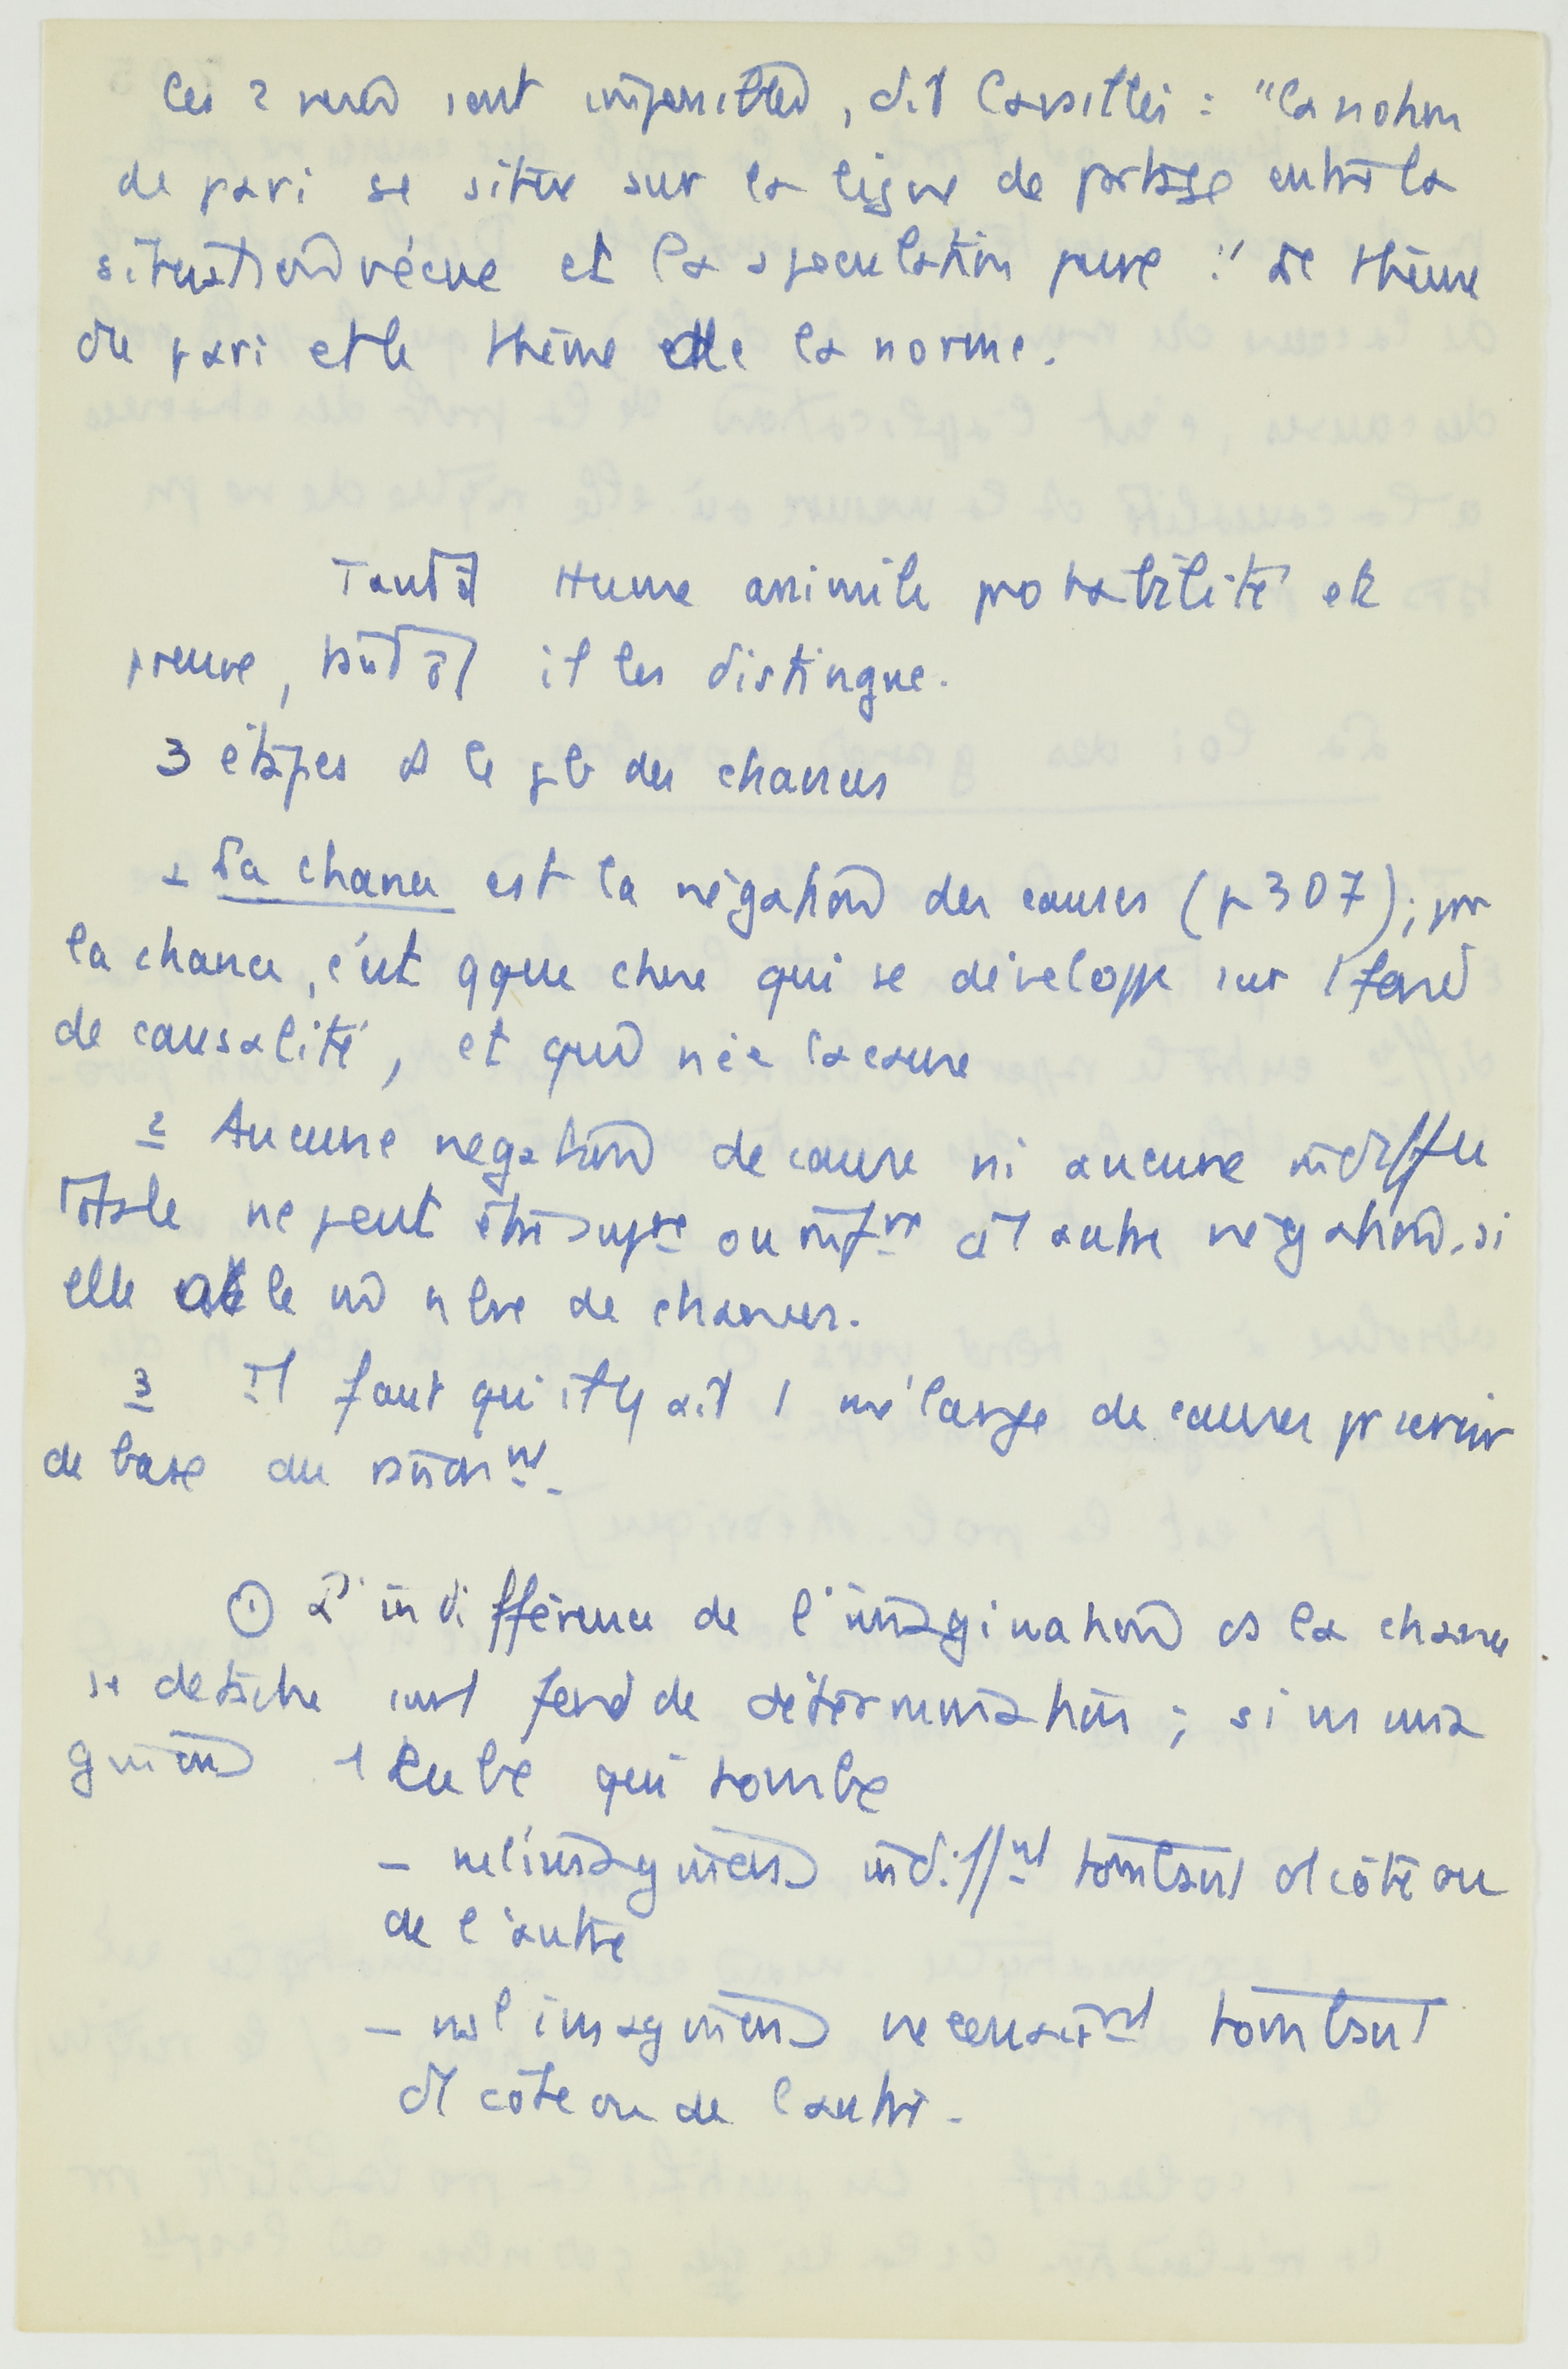 Ces 2 sont , dit : "la notion
de pari se situe sur la ligne de partage entre la
situation vécue et la speculation pure". Le thème
du pari et le thème de la norme.
Tantôt Hume assimile probabilité et
preuve, tantôt il les distingue.
3 étapes ds le pb des chances
1 La chance est la négation des causes (p 307); pr
la chance, c'est qque chose qui se développe sur 1 fond
de causalité, et qui nie la cause
2 Aucune negation de cause ni aucune indiffce
totale ne peut être supre ou infre à 1 autre négation, si
elle nbre de chances.
3 Il faut qu'il y ait 1 mélange de causes pr servir
de base au raisonnt.
① L'indifférence de l'imagination ds la chance
se detache sur 1 fond de détermination ; si ns ima
ginons 1 cube qui tombe
- ns l'imaginons indifft tombant d'1 côté ou
de l'autre
- ns l'imaginons necessairt tombant
d'1 côté ou de l'autre.